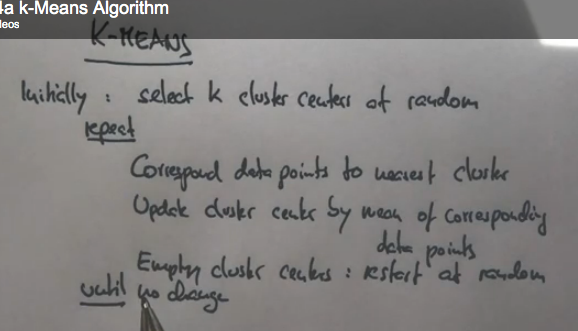 4a k-Means Algorithm
deos
K-MEANS
Initially : select k cluster centers at random
repeat
Correspond data points to nearest cluster
Update cluster center by mean of corresponding
data points
Empty cluster centers : restart at random
until no change